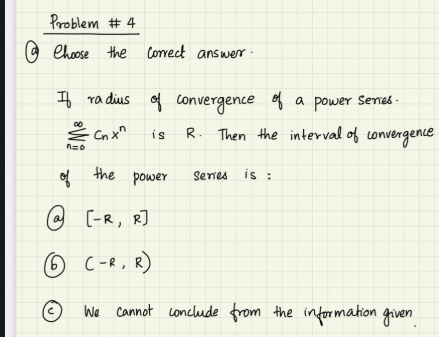 Problem # 4
ⓐ Choose the correct answer.
If radius of convergence of a power series.
∞ Σ n=0 Cn xⁿ is R. Then the interval of convergence
of the power series is :
ⓐ [-R, R]
ⓑ (-R, R)
ⓒ We cannot conclude from the information given.